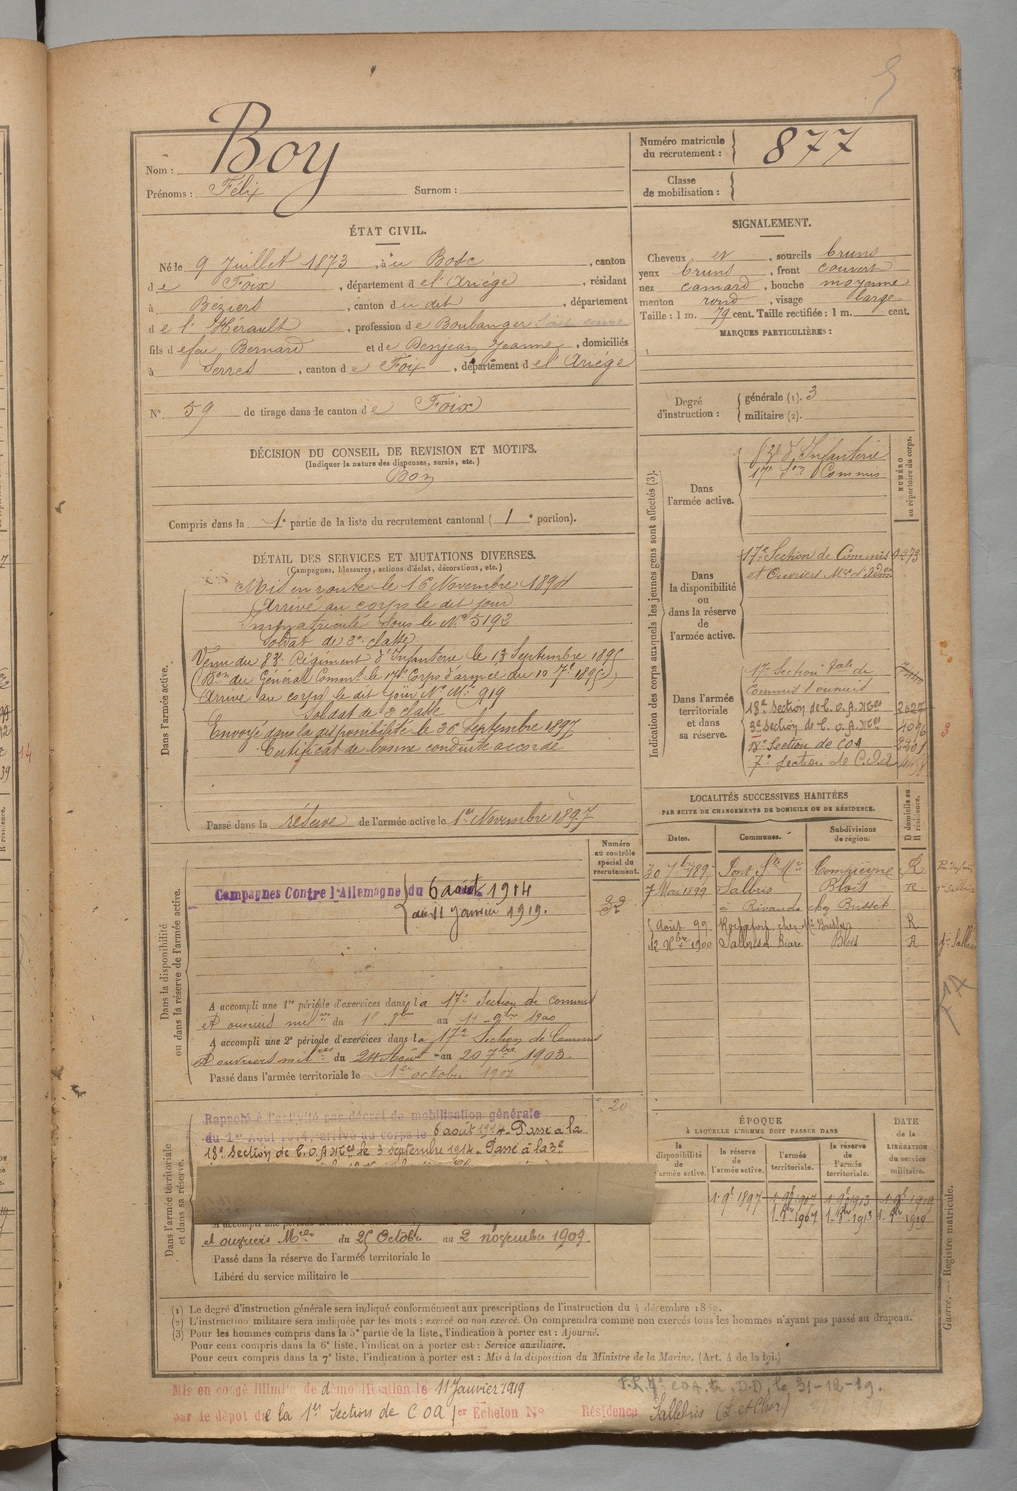 Boy
Nom :
Prénoms : Félix Surnom :
Numéro matricule du recrutement : 877
Classe de mobilisation :
ÉTAT CIVIL.
Né le 9 Juillet 1873, à u Bosc, canton
d e Foix, département d e l'Ariège, résidant
à Béziers, canton d u dit, département
d e l'Hérault, profession d e Boulanger
fils d e feu Bernard et d e Benjean Jeanne, domiciliés
à Serres, canton d e Foix, département d e l'Ariége
N° 59 de tirage dans le canton d e Foix
SIGNALEMENT.
Cheveux et, sourcils bruns
yeux bruns, front couvert
nez camard, bouche moyenne
menton rond, visage large
Taille : 1 m. 79 cent. Taille rectifiée : 1 m. cent.
MARQUES PARTICULIÈRES :
Degré d'instruction : générale (1). 3
militaire (2).
DÉCISION DU CONSEIL DE REVISION ET MOTIFS.
(Indiquer la nature des dispenses, sursis, etc.)
Bon
Compris dans la 1e partie de la liste du recrutement cantonal ( 1 e portion).
DÉTAIL DES SERVICES ET MUTATIONS DIVERSES.
(Campagnes, blessures, actions d'éclat, décorations, etc.)
Dans l'armée active.
Mis en route le 16 Novembre 1894
Arrivé au corps le dit jour
Immatriculé sous le N° 5192
Soldat de 2e classe
Venu du 83e Régiment d'Infanterie le 13 Septembre 1895
(Bon du Général Commt le 17e Corps d'armée du 10 7e 1895)
Arrivé au corps le dit jour N° Mle 919
Soldat de 2 classe
Envoyé dans la disponibilité le 30 septembre 1897
Certificat de bonne conduite accordé
Passé dans la réserve de l'armée active le 1er Novembre 1897
Indication des corps auxquels les jeunes gens sont affectés (3).
NUMÉRO au répertoire du corps.
Dans l'armée active.
83e d'Infanterie
17e Son Commis
Dans la disponibilité ou dans la réserve de l'armée active.
17e Section de Commis 1273
et Ouvriers Mres d'Adon
Dans l'armée territoriale et dans sa réserve.
17e Section Tale de
Commis Ouvriers
18e Section de C. O. A. 2627
3e Section de C. O. A. 4090
Section de COA
7e Section de
LOCALITÉS SUCCESSIVES HABITÉES
PAR SUITE DE CHANGEMENTS DE DOMICILE OU DE RÉSIDENCE.
Dates. Communes. Subdivisions de région. D domicile ou R résidence.
Compiègne R
7 Mai 1899 Salbris Blois R
à Rivaude chez Busset
Août 99 R
1900 Blois
Dans la disponibilité ou dans la réserve de l'armée active.
Numéro au contrôle spécial du recrutement.
Campagnes Contre l'Allemagne du 6 août 1914
au 11 Janvier 1919.
A accompli une 1re période d'exercices dans la 17e Section de commis
et ouvriers milres du 1900
A accompli une 2e période d'exercices dans la 17e Section de Commis
et ouvriers milres du 24 Août au 20 7bre 1903.
Passé dans l'armée territoriale le 1er octobre 1907
Dans l'armée territoriale et dans sa réserve.
Rappelé à l'activité par décret de mobilisation générale
du 1er Août 1914, arrivé au corps le 6 août 1914. Passé à la
18e Section de C. O. A. le 3 septembre 1914. Passé à la 3e
et ouvriers Mres du 25 Octobre au 2 novembre 1909.
Passé dans la réserve de l'armée territoriale le
Libéré du service militaire le
ÉPOQUE
À LAQUELLE L'HOMME DOIT PASSER DANS
la disponibilité de l'armée active. la réserve de l'armée active. l'armée territoriale. la réserve de l'armée territoriale. DATE de la LIBÉRATION du service militaire.
1. 9e 1897 1. 9e 1907 1. 9e 1913 1. 9e 1919
1. 1907 1. 1913 1. 1919
(1) Le degré d'instruction générale sera indiqué conformément aux prescriptions de l'instruction du 4 décembre 1889.
(2) L'instruction militaire sera indiquée par les mots : exercé ou non exercé. On comprendra comme non exercés tous les hommes n'ayant pas passé au drapeau.
(3) Pour les hommes compris dans la 5e partie de la liste, l'indication à porter est : Ajourné.
Pour ceux compris dans la 6e liste, l'indication à porter est : Service auxiliaire.
Pour ceux compris dans la 7e liste, l'indication à porter est : Mis à la disposition du Ministre de la Marine. (Art. 4 de la loi.)
Guerre. — Registre matricule.
Mis en congé illimité de démobilisation le 11 Janvier 1919
par le dépôt de la 1re Section de COA 1er Échelon N° Résidence Salbris (L et Cher)
le 31-12-19.